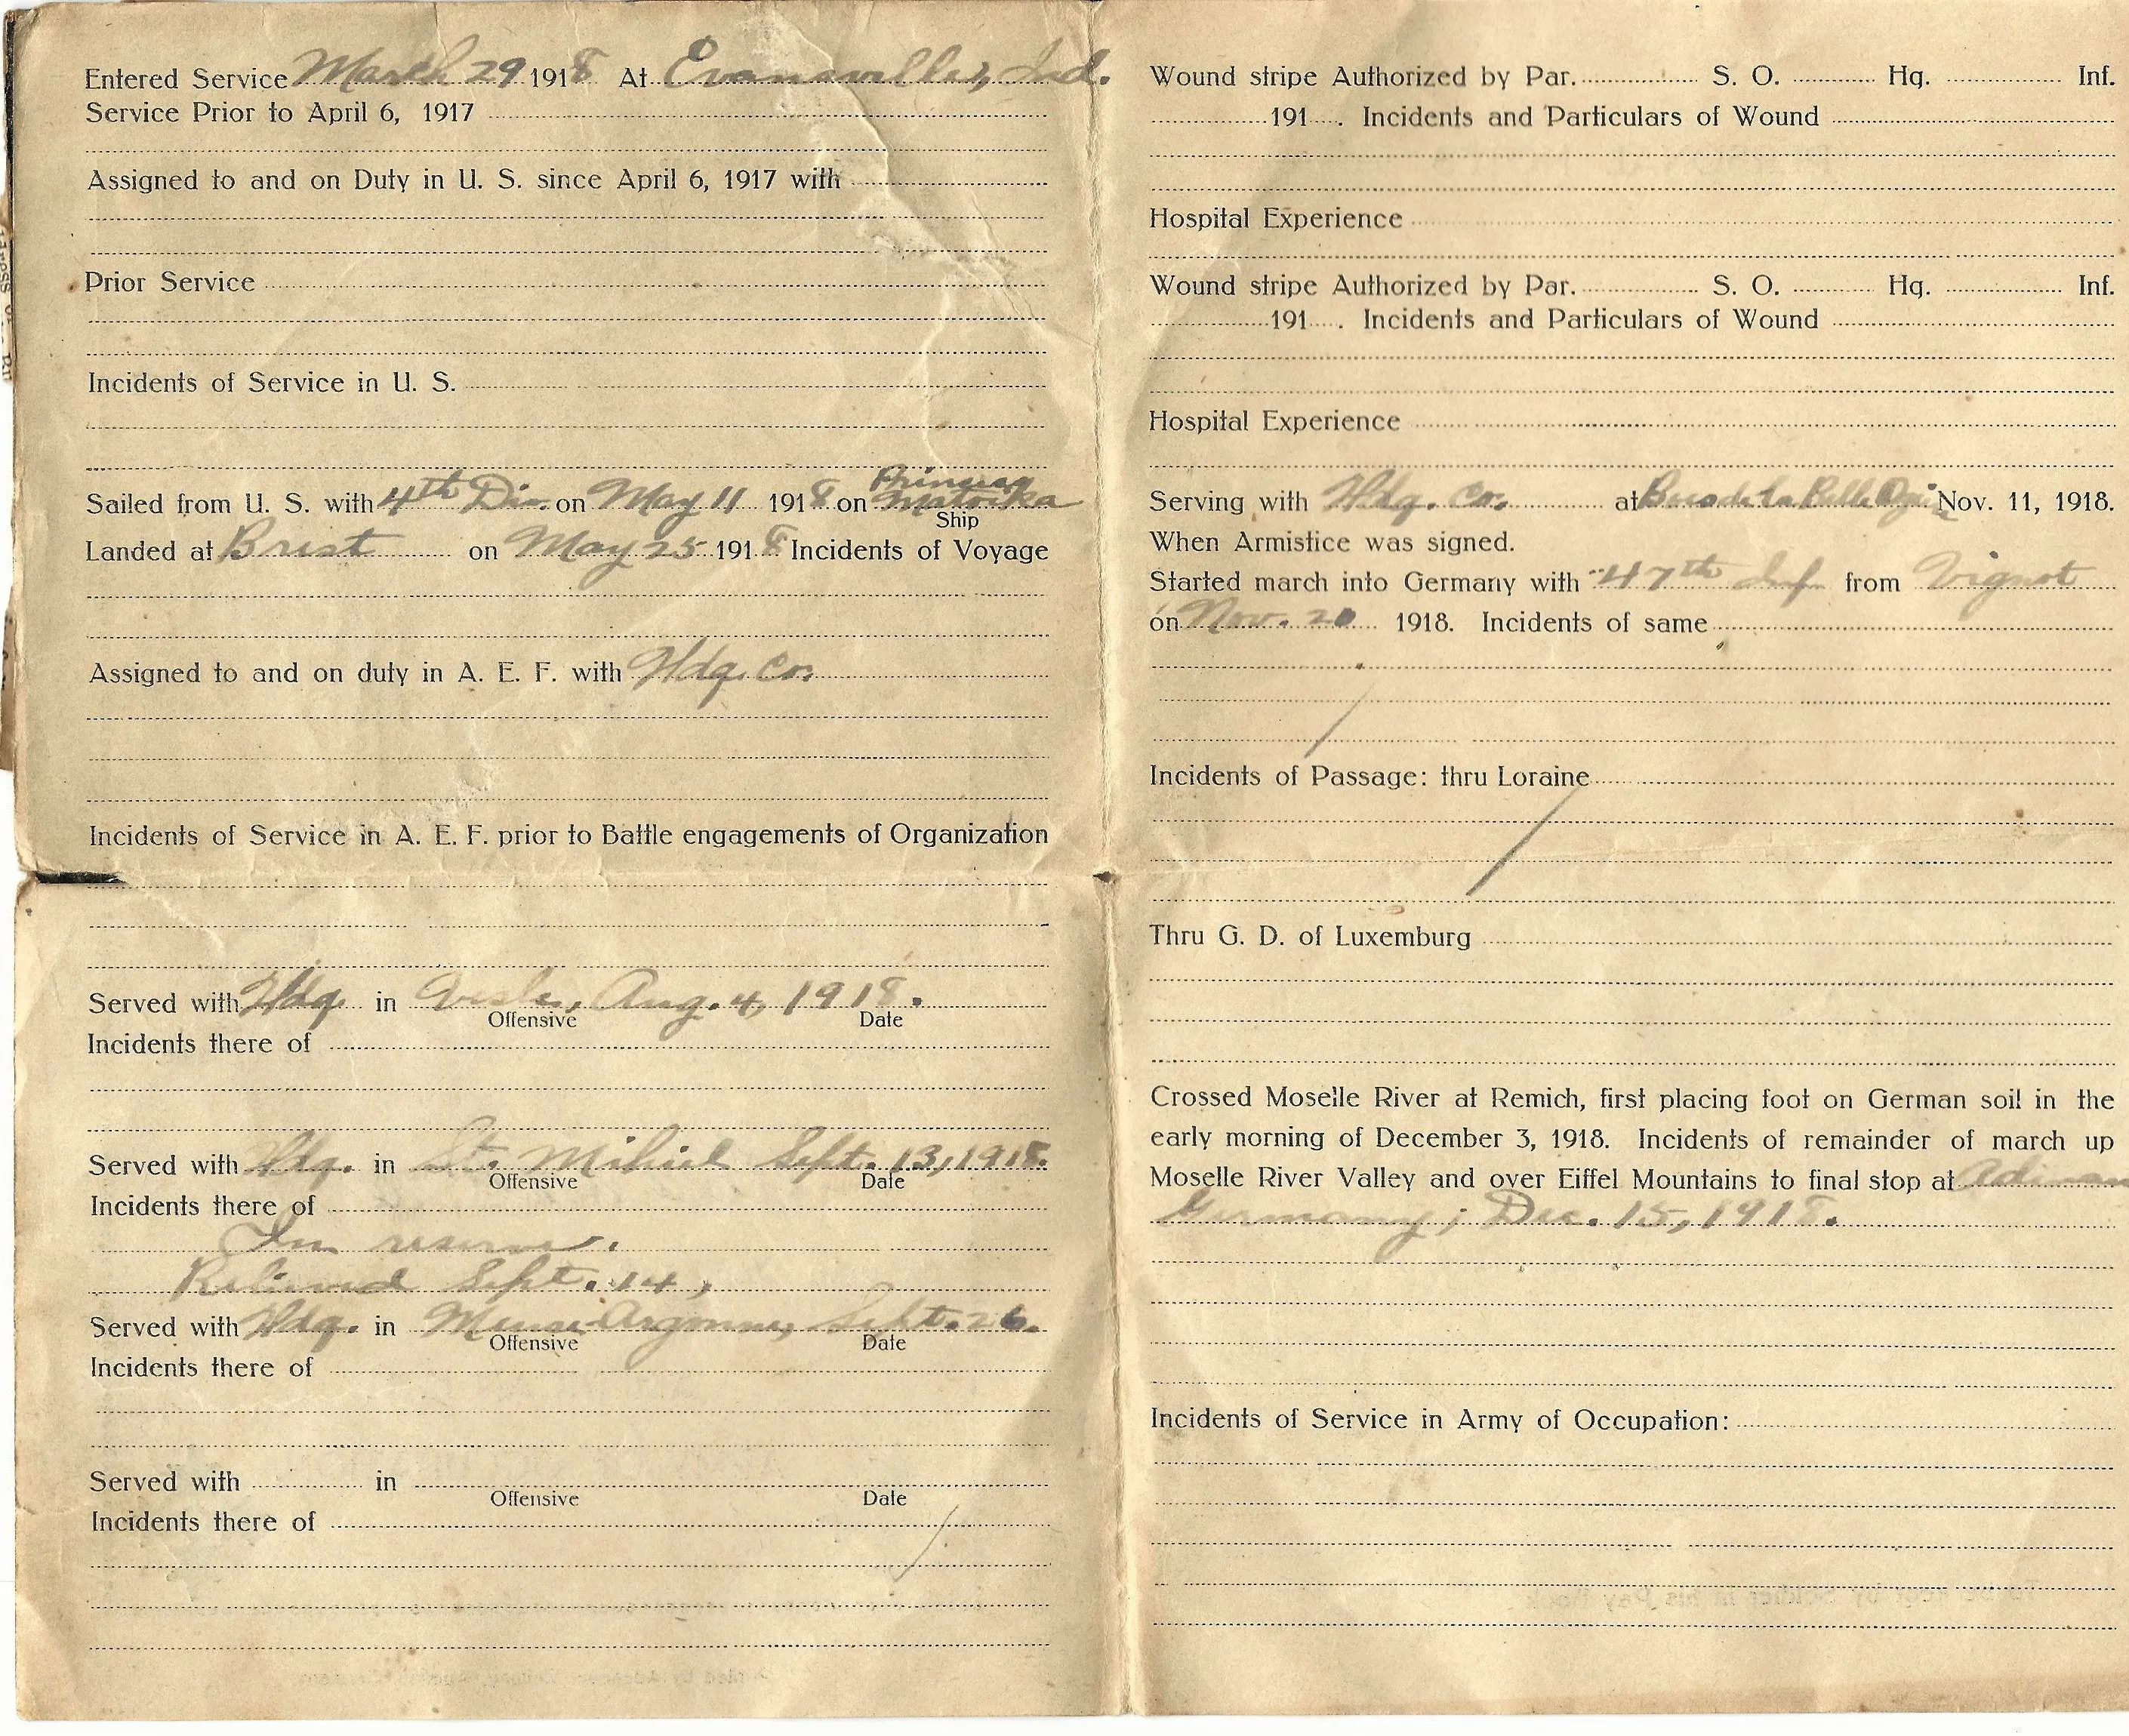 Entered Service March 29 1918 At Evansville, Ind.
Service Prior to April 6, 1917
Assigned to and on Duty in U. S. since April 6, 1917 with
Prior Service
Incidents of Service in U. S.
Sailed from U. S. with 4th Div. on May 11 1918 on Princess Matoika
Ship
Landed at Brest on May 25 1918 Incidents of Voyage
Assigned to and on duty in A. E. F. with Hdq. Co.
Incidents of Service in A. E. F. prior to Battle engagements of Organization
Served with Hdq. in Vesle, Aug. 4, 1918.
Offensive Date
Incidents there of
Served with Hdq. in St. Mihiel Sept. 13, 1918.
Offensive Date
Incidents there of
In reserve.
Relieved Sept. 14,
Served with Hdq. in Meuse-Argonne, Sept. 26.
Offensive Date
Incidents there of
Served with in
Offensive Date
Incidents there of
Wound stripe Authorized by Par. S. O. Hq. Inf.
191 . Incidents and Particulars of Wound
Hospital Experience
Wound stripe Authorized by Par. S. O. Hq. Inf.
191 . Incidents and Particulars of Wound
Hospital Experience
Serving with Hdq. Co. at de la Belle Nov. 11, 1918.
When Armistice was signed.
Started march into Germany with 47th Inf from Vignot
on Nov. 20 1918. Incidents of same
Incidents of Passage: thru Loraine
Thru G. D. of Luxemburg
Crossed Moselle River at Remich, first placing foot on German soil in the
early morning of December 3, 1918. Incidents of remainder of march up
Moselle River Valley and over Eiffel Mountains to final stop at
Germany; Dec. 15, 1918.
Incidents of Service in Army of Occupation: